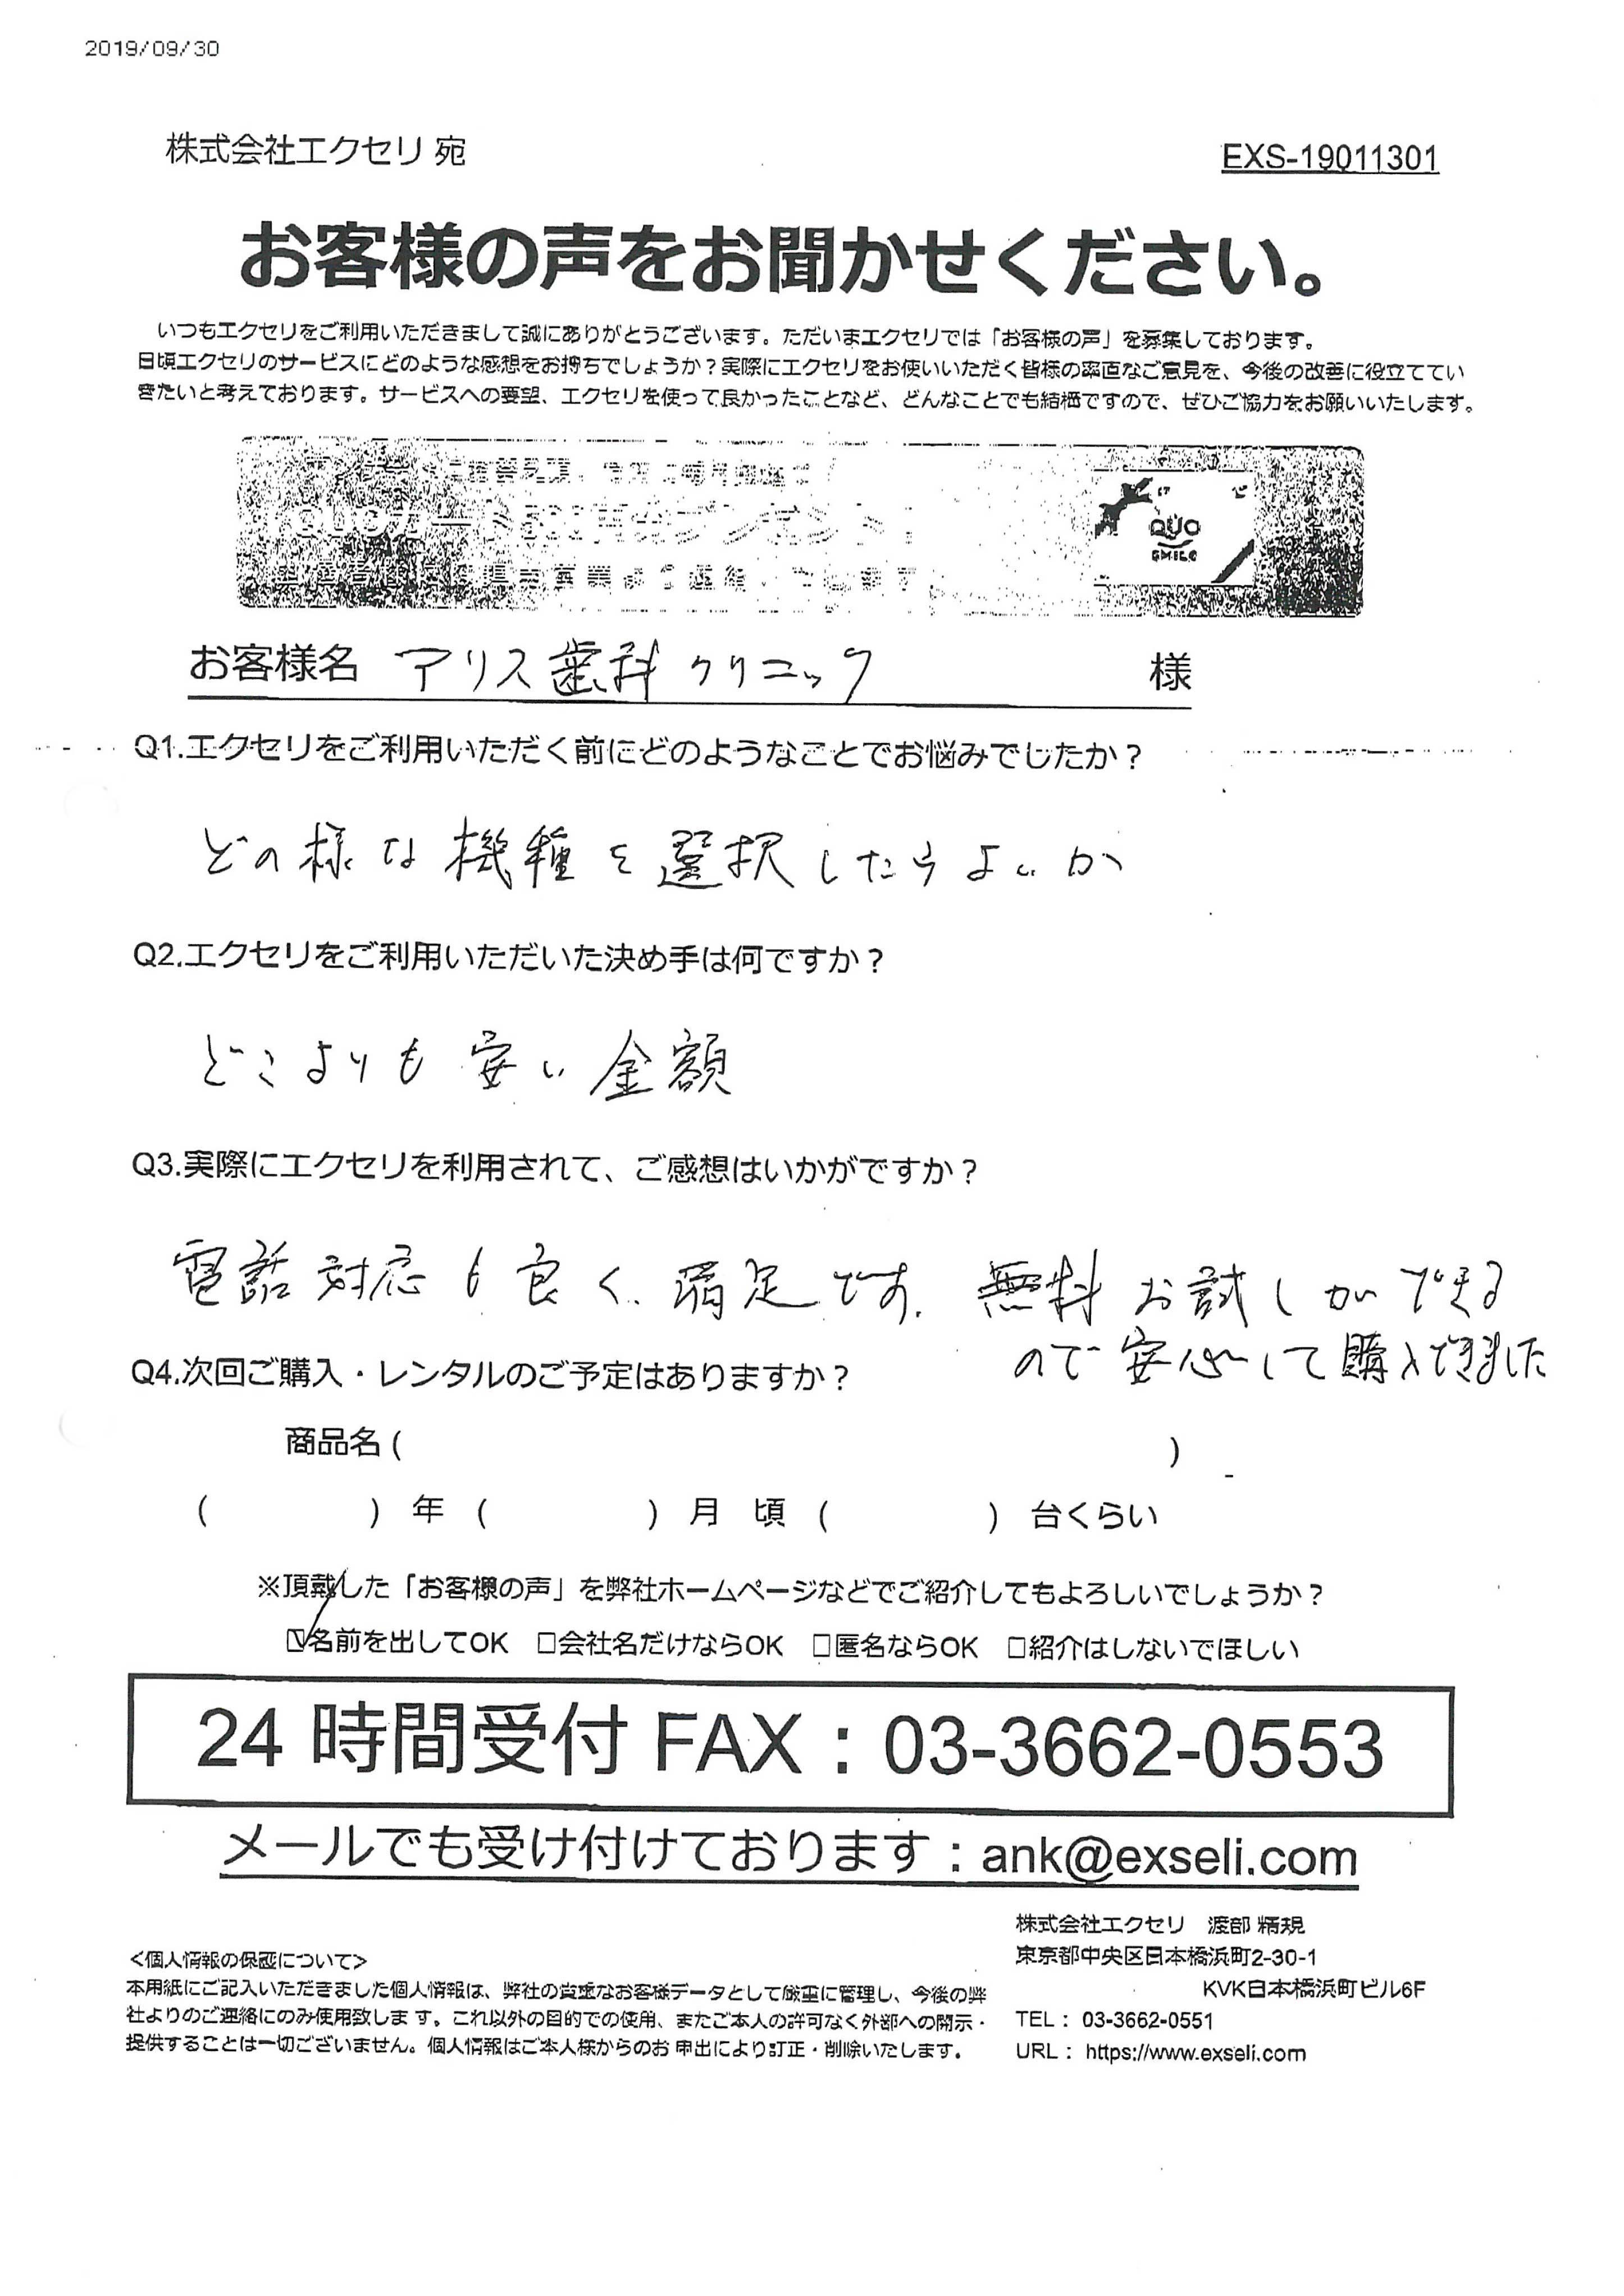 2019/09/30
株式会社エクセリ 宛
EXS-19011301
お客様の声をお聞かせください。
いつもエクセリをご利用いただきまして誠にありがとうございます。ただいまエクセリでは「お客様の声」を募集しております。
日頃エクセリのサービスにどのような感想をお持ちでしょうか？実際にエクセリをお使いいただく皆様の率直なご意見を、今後の改善に役立ててい
きたいと考えております。サービスへの要望、エクセリを使って良かったことなど、どんなことでも結構ですので、ぜひご協力をお願いいたします。
QUOカード
QUO
SMILE
お客様名 アリス歯科クリニック 様
Q1.エクセリをご利用いただく前にどのようなことでお悩みでしたか？
どの様な機種を選択したらよいか
Q2.エクセリをご利用いただいた決め手は何ですか？
どこよりも安い金額
Q3.実際にエクセリを利用されて、ご感想はいかがですか？
電話対応も良く、満足です。無料お試しができる
ので安心して購入できました
Q4.次回ご購入・レンタルのご予定はありますか？
商品名 ( )
( ) 年 ( ) 月 頃 ( ) 台くらい
※頂戴した「お客様の声」を弊社ホームページなどでご紹介してもよろしいでしょうか？
☑名前を出してOK □会社名だけならOK □匿名ならOK □紹介はしないでほしい
24 時間受付 FAX：03-3662-0553
メールでも受け付けております：ank@exseli.com
株式会社エクセリ 渡部 精規
東京都中央区日本橋浜町2-30-1
KVK日本橋浜町ビル6F
TEL： 03-3662-0551
URL： https://www.exseli.com
＜個人情報の保護について＞
本用紙にご記入いただきました個人情報は、弊社の貴重なお客様データとして厳重に管理し、今後の弊
社よりのご連絡にのみ使用致します。これ以外の目的での使用、またご本人の許可なく外部への開示・
提供することは一切ございません。個人情報はご本人様からのお申出により訂正・削除いたします。